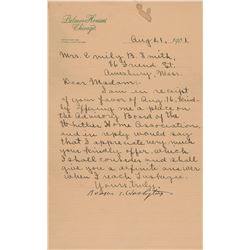 Palmer House
Chicago
Aug. 21, 1901.
Mrs. Emily B. Smith,
16 Friend St.
Amesbury, Mass.
Dear Madam:
I am in receipt
of your favor of Aug. 16, kind-
ly offering me a place on
the Advisory Board of the
Whittier Home Association,
and in reply would say
that I appreciate very much
your kindly offer, which
I shall consider and shall
give you a definite answer
when I reach Tuskegee.
Yours truly,
Booker T. Washington